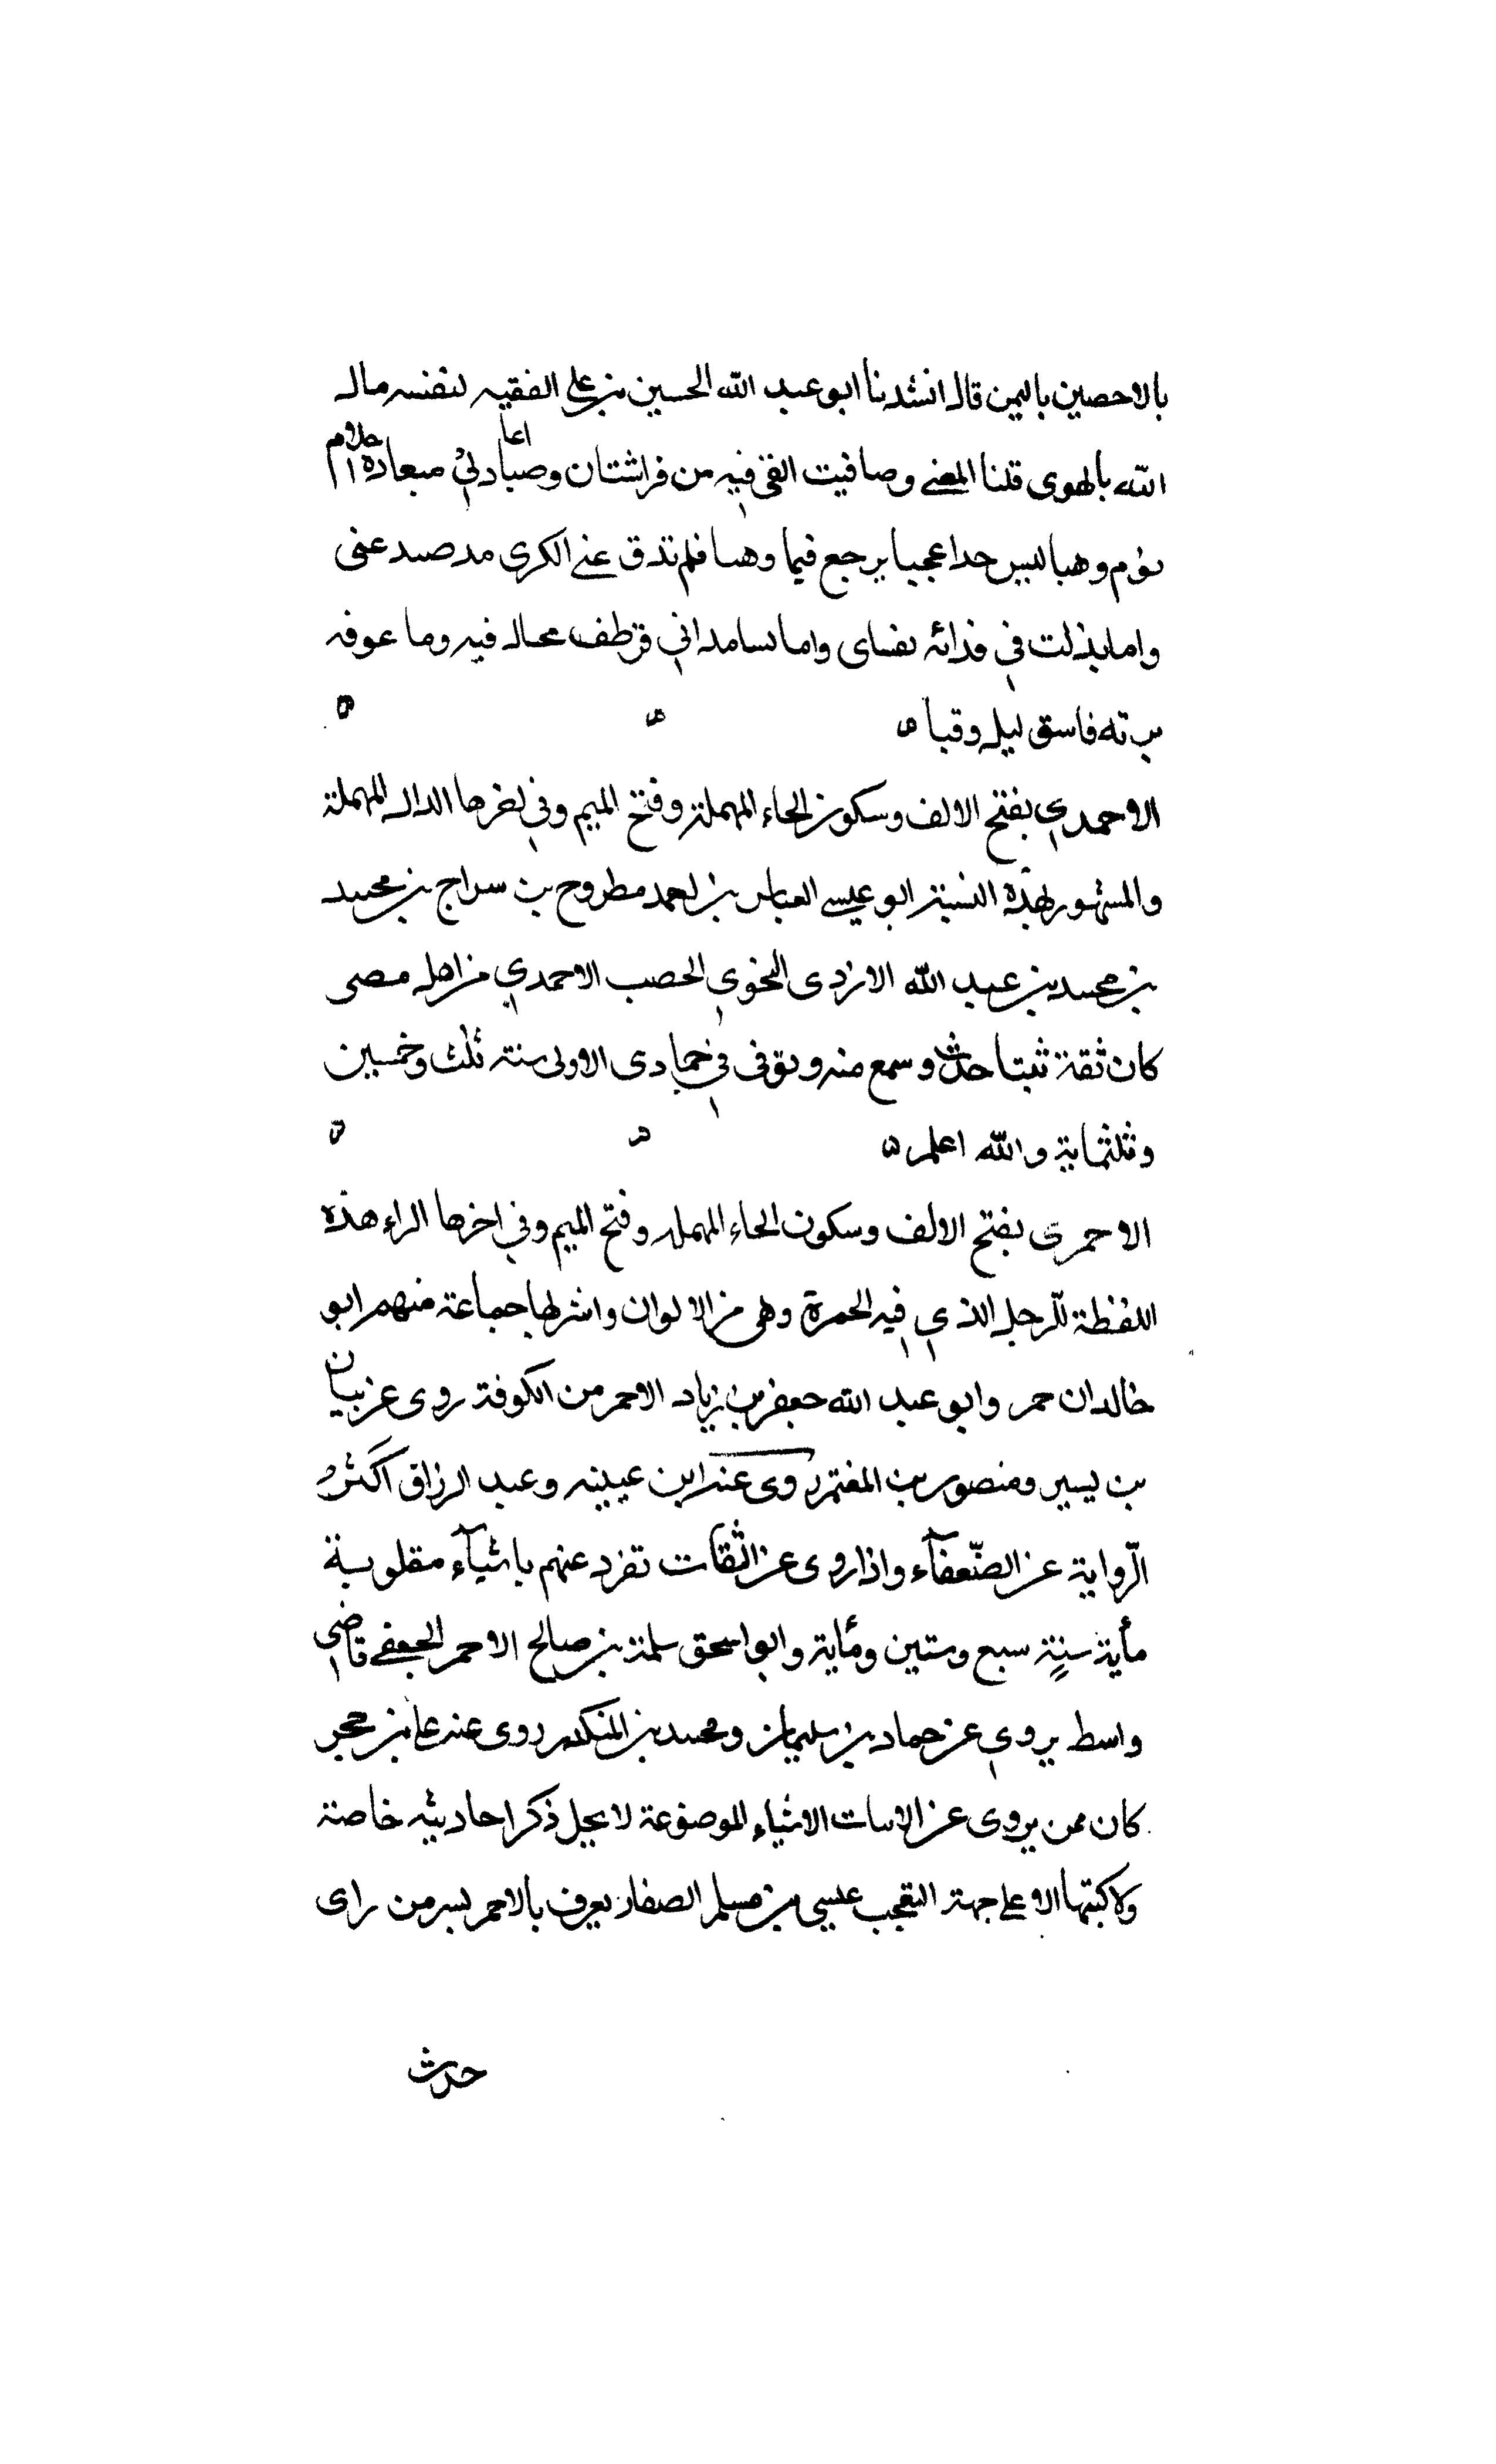 بالاحصين باليمن قال انشدنا ابو عبد الله الحسين بن علي الفقيه لنفسه مال
الله بالهوى قلنا المعنى وصافيت الفى فيه من فراشتان وصبا دلى مبعاده
نوم وهبا لبيس حدا عجيبا يرجع فيما وهبا فلم تدق عنى الكرى مد صد عنى
واما بذلت في فدائه نفساى واما بسامداني قرطف محال فيه وما عوفه
من ته فاسق ليله وقبا ه
الاحمدي بفتح الالف وسكون الحاء المهملة وفتح الميم وفي اخرها الدال المهملة
والمشهور بهذه النسبة ابو عيسى العباس بن احمد مطروح بن سراج بن محمد
بن محمد بن عبد الله الازدى النحوي الحصب الاحمدي من اهل مصى
كان ثقة ثبتا حدث وسمع منه وتوفى في جمادى الاولى سنة ثلث وخمسين
وثلثماية والله اعلم ه
الاحمرى بفتح الالف وسكون الحاء المهمله وفتح الميم وفي اخرها الراء هذه
اللفظة للرجل الذي فيه الحمرة وهى من الالوان واشر لها جماعة منهم ابو
خالدان حمر وابو عبد الله جعفر بن زياد الاحمر من الكوفة روى عن بيان
بن يسير ومنصور بن المغتمر روى عنه ابن عيينه وعبد الرزاق اكثر
الرواية عن الضعفآء واذا روى عن الثقات تفرد عنهم باشيآء مقلوبة
مأية سنة سبع وستين ومأية وابو اسحق سلمة بن صالح الاحمر الجعفى قاضى
واسط يروي عن حماد بن سليمان ومحمد بن المنكدر روى عنه على بن حجر
كان ممن يروى عن الاسات الاشياء الموضوعة لا يحل ذكر احاديثه خاصة
ولا كبتها الا على جهة التعجب عيسى بن مسلم الصفار يعرف بالاحمر بسر من راى
حدث